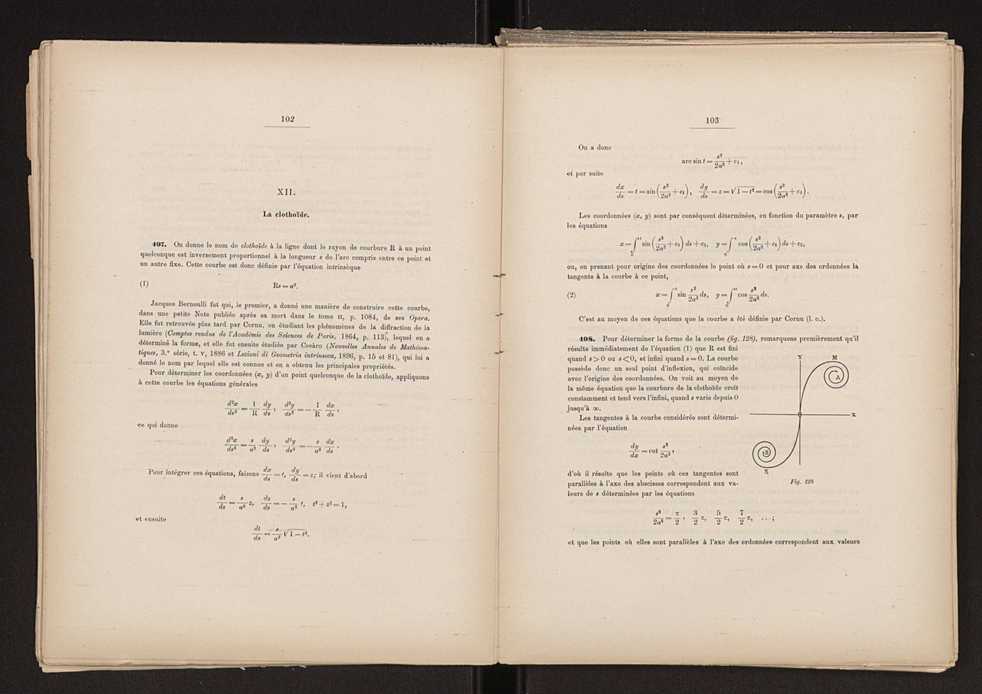 102
XII.
La clothoïde.
407. On donne le nom de clothoïde à la ligne dont le rayon de courbure R à un point
quelconque est inversement proportionnel à la longueur s de l'arc compris entre ce point et
un autre fixe. Cette courbe est donc définie par l'équation intrinsèque
(1) Rs = a².
Jacques Bernoulli fut qui, le premier, a donné une manière de construire cette courbe,
dans une petite Note publiée après sa mort dans le tome II, p. 1084, de ses Opera.
Elle fut retrouvée plus tard par Cornu, en étudiant les phénomènes de la diffraction de la
lumière (Comptes rendus de l'Académie des Sciences de Paris, 1864, p. 113), lequel en a
déterminé la forme, et elle fut ensuite étudiée par Cesàro (Nouvelles Annales de Mathéma-
tiques, 3.e série, t. V, 1886 et Lezioni di Geometria intrinseca, 1896, p. 15 et 81), qui lui a
donné le nom par lequel elle est connue et en a obtenu les principales propriétés.
Pour déterminer les coordonnées (x, y) d'un point quelconque de la clothoïde, appliquons
à cette courbe les équations générales
d²x/ds² = 1/R dy/ds, d²y/ds² = − 1/R dx/ds,
ce qui donne
d²x/ds² = s/a² dy/ds, d²y/ds² = − s/a² dx/ds.
Pour intégrer ces équations, faisons dx/ds = t, dy/ds = z; il vient d'abord
dt/ds = s/a² z, dz/ds = − s/a² t, t² + z² = 1,
et ensuite
dt/ds = s/a² √1 − t².
103
On a donc
arc sin t = s²/2a² + c₁,
et par suite
dx/ds = t = sin (s²/2a² + c₁), dy/ds = z = √1 − t² = cos (s²/2a² + c₁).
Les coordonnées (x, y) sont par conséquent déterminées, en fonction du paramètre s, par
les équations
x = ∫ sin (s²/2a² + c₁) ds + c₂, y = ∫ cos (s²/2a² + c₁) ds + c₃,
ou, en prenant pour origine des coordonnées le point où s = 0 et pour axe des ordonnées la
tangente à la courbe à ce point,
(2) x = ∫₀ˢ sin s²/2a² ds, y = ∫₀ˢ cos s²/2a² ds.
C'est au moyen de ces équations que la courbe a été définie par Cornu (l. c.).
408. Pour déterminer la forme de la courbe (fig. 128), remarquons premièrement qu'il
résulte immédiatement de l'équation (1) que R est fini
quand s > 0 ou s < 0, et infini quand s = 0. La courbe
possède donc un seul point d'inflexion, qui coïncide
avec l'origine des coordonnées. On voit au moyen de
la même équation que la courbure de la clothoïde croît
constamment et tend vers l'infini, quand s varie depuis 0
jusqu'à ∞.
Les tangentes à la courbe considérée sont détermi-
nées par l'équation
dy/dx = cot s²/2a²,
d'où il résulte que les points où ces tangentes sont
parallèles à l'axe des abscisses correspondent aux va-
leurs de s déterminées par les équations
Y M
A
X
B
N
Fig. 128
s²/2a² = π/2, 3/2 π, 5/2 π, 7/2 π, ...;
et que les points où elles sont parallèles à l'axe des ordonnées correspondent aux valeurs